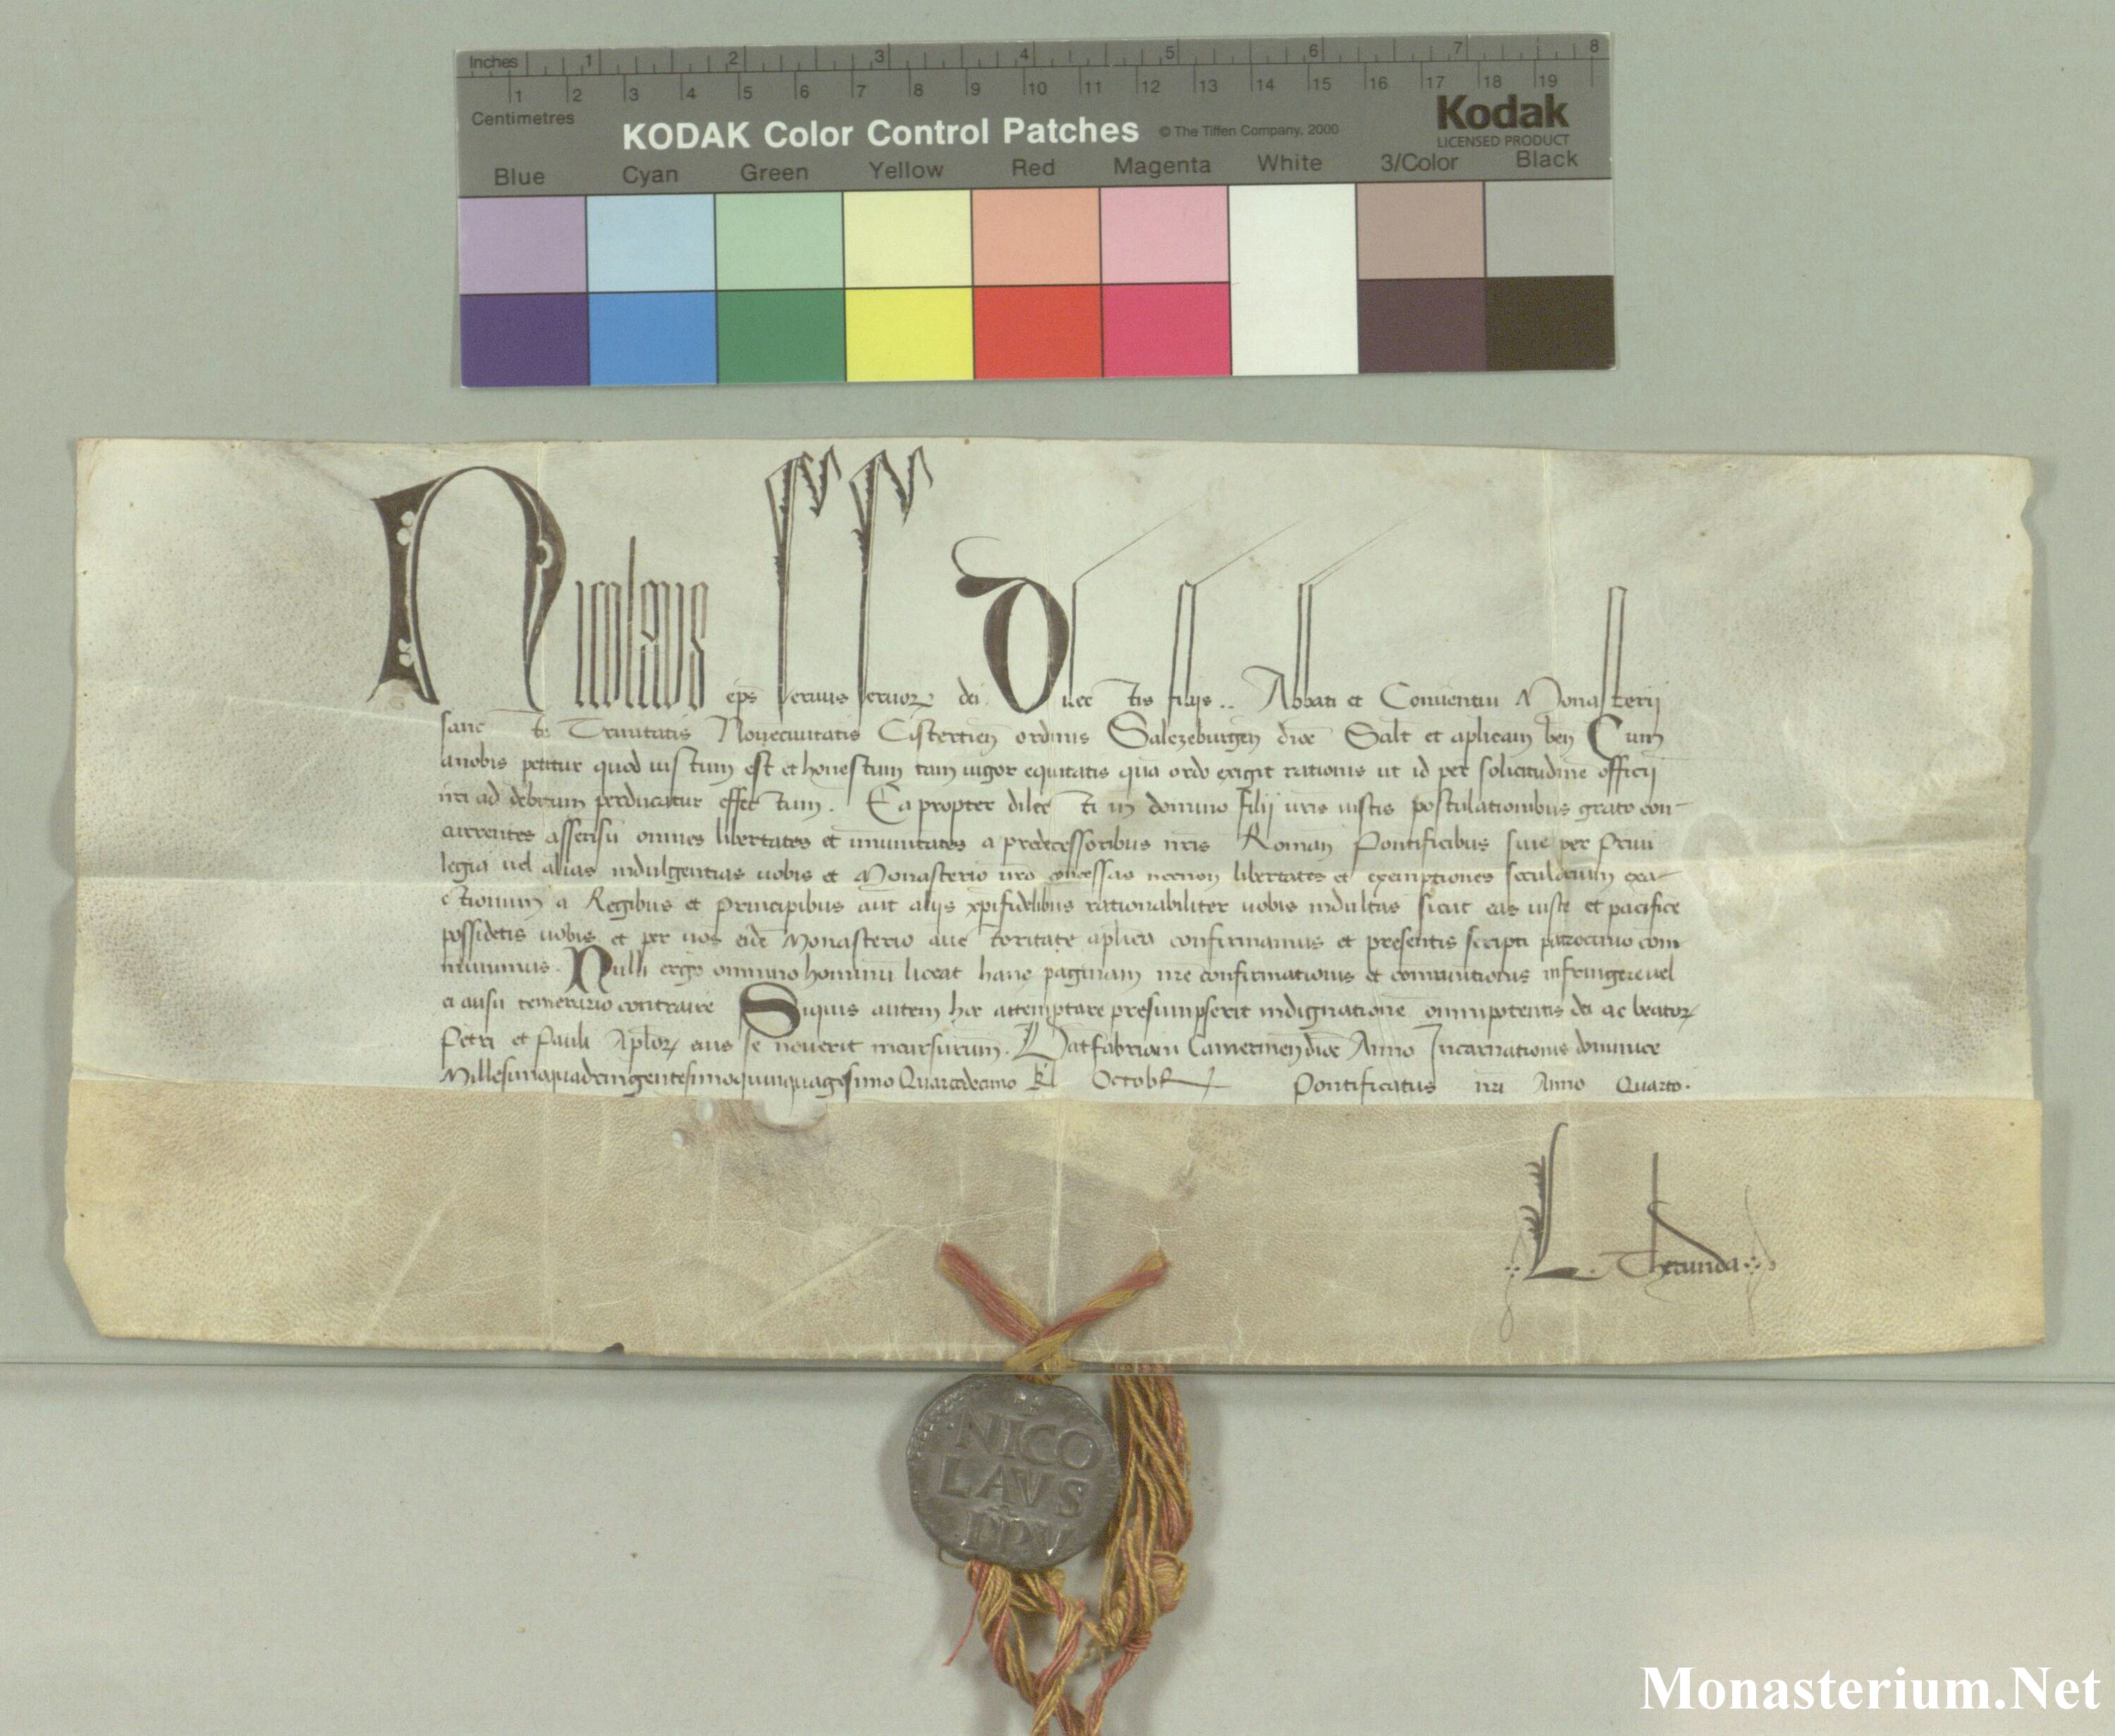 Inches 1 2 3 4 5 6 7 8
1 2 3 4 5 6 7 8 9 10 11 12 13 14 15 16 17 18 19
Centimetres
KODAK Color Control Patches © The Tiffen Company, 2000 Kodak
LICENSED PRODUCT
Blue Cyan Green Yellow Red Magenta White 3/Color Black
Nicolaus ep̄s seruus seruoꝝ dei. Dilectis filijs .. Abbati et Conuentui Monasterij
sancte Trinitatis Nouecuitatis Cistercień ordinis Salczeburgeń dioc̄ Salt̄ et aplicam beń Cum
anobis petitur quod iustum est et honestum tam uigor equitatis qua ordo exigit rationis ut id per solicitudinē officij
nr̄i ad debitum perducatur effectum. Eapropter dilecti in domino filij ur̄is iustis postulationibus grato con-
currentes assensu omnes libertates et imunitates a predecessoribus nr̄is Romań Pontificibus siue per Priui
legia uel alias indulgentias uobis et Monasterio ur̄o concessas necnon libertates et exemptiones secularium exa-
ctionum a Regibus et Principibus aut alijs xp̄ifidelibus rationabiliter uobis indultas sicut eas iuste et pacifice
possidetis uobis et per uos eidē Monasterio auctoritate aplica confirmamus et presentis scripti patrocinio com
munimus. Nulli ergo omnino hominū liceat hanc paginam nr̄e confirmationis et comunitionis infringere uel
ei ausu temerario contraire Siquis autem hoc attemptare presumpserit indignationē omnipotentis dei ac beatoꝝ
Petri et Pauli Apl̄oꝝ eius se nouerit incursurum. Dat̄ fabriani Camerineń dioc̄ Anno Incarnationis dominice
Millesimoquadringentesimoquinquagesimo Quartodecimo kl̄ Octobr̄ Pontificatus nr̄i Anno Quarto.
L. Therunda
NICO
LAVS
PP V
Monasterium.Net